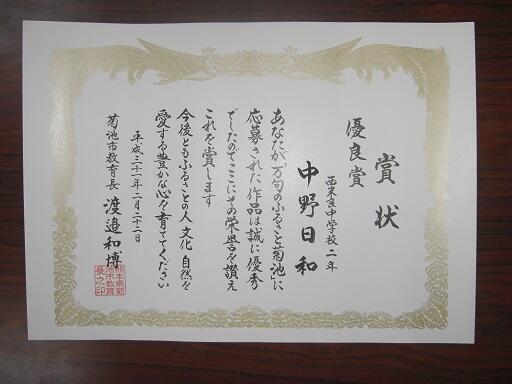 賞状
優良賞
西米良中学校二年
中野日和
あなたが万句のふるさと菊池に
応募された作品は誠に優秀
でしたのでここにその栄誉を讃え
これを賞します
今後ともふるさとの人 文化 自然を
愛する豊かな心を育ててください
平成三十一年二月二十二日
菊池市教育長 渡邉和博
熊本県菊
池市教育
長之印